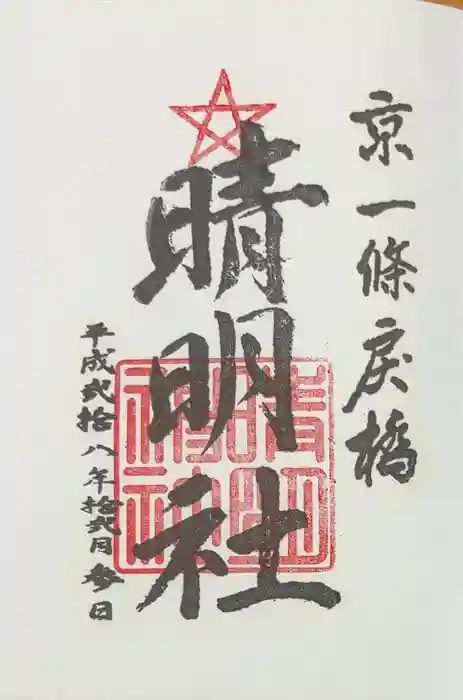 京一條戻橋
晴明社
平成弐拾八年拾弐月参日